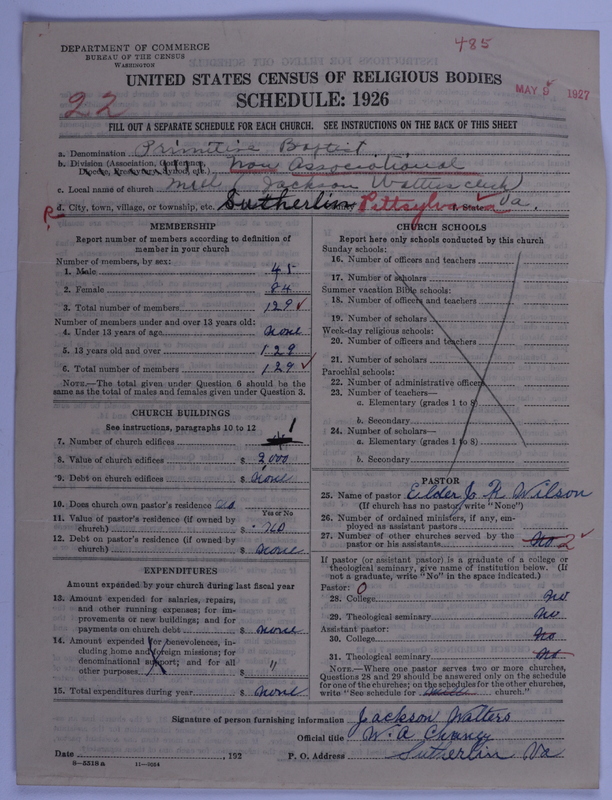 DEPARTMENT OF COMMERCE
BUREAU OF THE CENSUS
WASHINGTON
485
UNITED STATES CENSUS OF RELIGIOUS BODIES
SCHEDULE: 1926
MAY 1927
22
FILL OUT A SEPARATE SCHEDULE FOR EACH CHURCH. SEE INSTRUCTIONS ON THE BACK OF THIS SHEET
a. Denomination Primitive Baptist
b. Division (Association, Conference, Diocese, Presbytery, Synod, etc.) Non Associational
c. Local name of church Mill Jackson Watters clerk)
d. City, town, village, or township, etc. Sutherlin Pittsylvania f. State Va.
R
MEMBERSHIP
Report number of members according to definition of
member in your church
Number of members, by sex:
1. Male 45
2. Female 84
3. Total number of members 129
Number of members under and over 13 years old:
4. Under 13 years of age none
5. 13 years old and over 129
6. Total number of members 129
NOTE.—The total given under Question 6 should be the
same as the total of males and females given under Question 3.
CHURCH BUILDINGS
See instructions, paragraphs 10 to 12
7. Number of church edifices 1
8. Value of church edifices $ 2000
9. Debt on church edifices $ None
10. Does church own pastor's residence no
Yes or No
11. Value of pastor's residence (if owned by
church) $ no
12. Debt on pastor's residence (if owned by
church) $ none
EXPENDITURES
Amount expended by your church during last fiscal year
13. Amount expended for salaries, repairs,
and other running expenses; for im-
provements or new buildings; and for
payments on church debt $ none
14. Amount expended for benevolences, in-
cluding home and foreign missions; for
denominational support; and for all
other purposes $ "
15. Total expenditures during year $ none
CHURCH SCHOOLS
Report here only schools conducted by this church
Sunday schools:
16. Number of officers and teachers
17. Number of scholars
Summer vacation Bible schools:
18. Number of officers and teachers
19. Number of scholars
Week-day religious schools:
20. Number of officers and teachers
21. Number of scholars
Parochial schools:
22. Number of administrative officers
23. Number of teachers—
a. Elementary (grades 1 to 8)
b. Secondary
24. Number of scholars—
a. Elementary (grades 1 to 8)
b. Secondary
PASTOR
25. Name of pastor Elder J. R. Wilson
(If church has no pastor, write "None")
26. Number of ordained ministers, if any, em-
ployed as assistant pastors
27. Number of other churches served by the
pastor or his assistants no 2
If pastor (or assistant pastor) is a graduate of a college or
theological seminary, give name of institution below. (If
not a graduate, write "No" in the space indicated.)
Pastor: 0
28. College no
29. Theological seminary no
Assistant pastor:
30. College no
31. Theological seminary no
NOTE.—Where one pastor serves two or more churches,
Questions 28 and 29 should be answered only on the schedule
for one of the churches; on the schedules for the other churches,
write "See schedule for church."
Signature of person furnishing information Jackson Watters
Official title W. A
Date , 192 P. O. Address Sutherlin Va
8—5518 a 11—9064